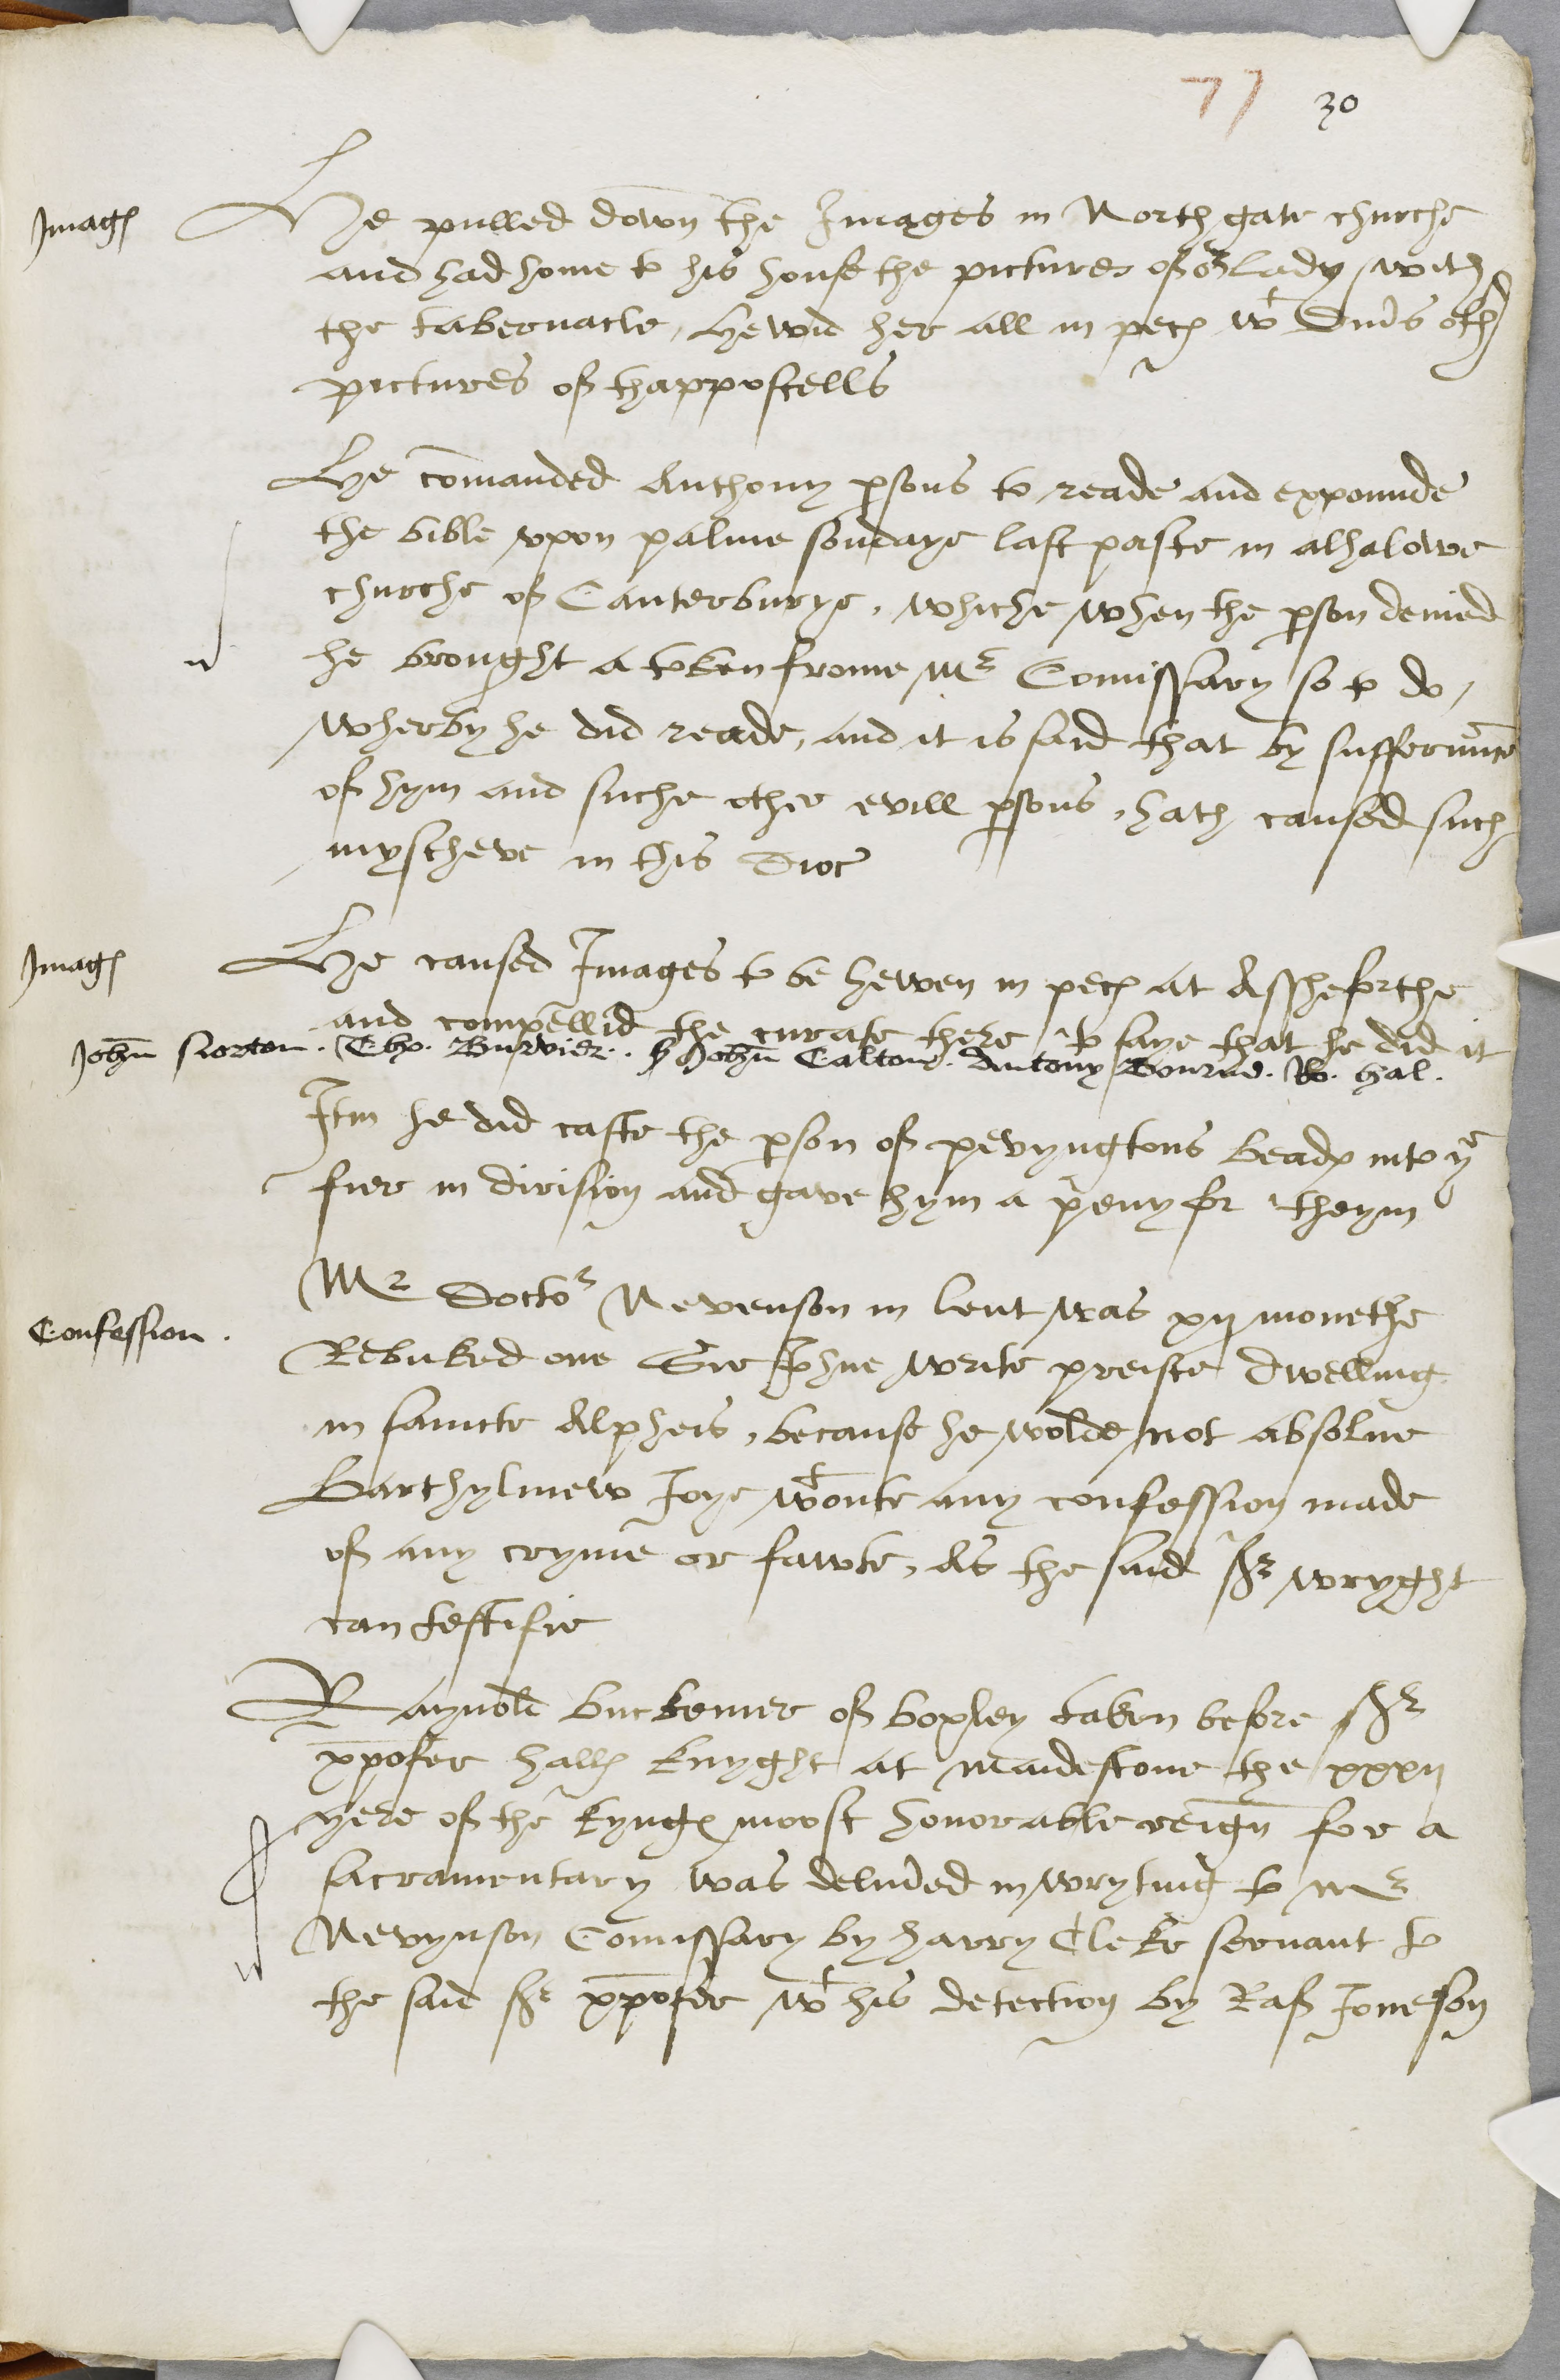 77 30
Imag
He pulled down the Images in Northgate churche
and had home to his house the pictures of or lady with
the tabernacle, hewid her all in pec wt diu's oth
pictures of thappostells
He comanded Anthony psons to reade and expounde
the bible vpon palme sondaye last paste in alhalowe
churche of Canterburye, whiche when the pson denied
he brought a token frome Mr Comissary so to do,
wherby he did reade, and it is said that by sufferaunce
of hym and suche other evill psons, hath caused such
myscheve in this dioc
Imag
He caused Images to be hewen in pec at Assheforthe
and compellid the curate there to saye that he did it
John . Tho. Burvier. John Calton. Antony . Ro. Hal.
Itm he did caste the pson of pevyngtons beads into ye
fier in dirision and gave hym a peny for theym
Confession.
Mr Doctor Nevenson in lent was xij monethe
Rebuked one Sir Johne write preiste dwelling
in saincte Alpheis, because he wolde not absolue
Barthylmew Joye wtoute any confession made
of any cryme or fawte, As the said Sr wryght
can testifie
Raynold buckemer of boxley taken before Sr
xpofer hall knyght at Maidestone the xxxij
yere of the kyng moost honorable reign for a
sacramentary was deliu'ed in wryting to Mr
Nevynson Comissary by harry Cleke seruant to
the said Sr xpofer wt his detection by Raf Joneson